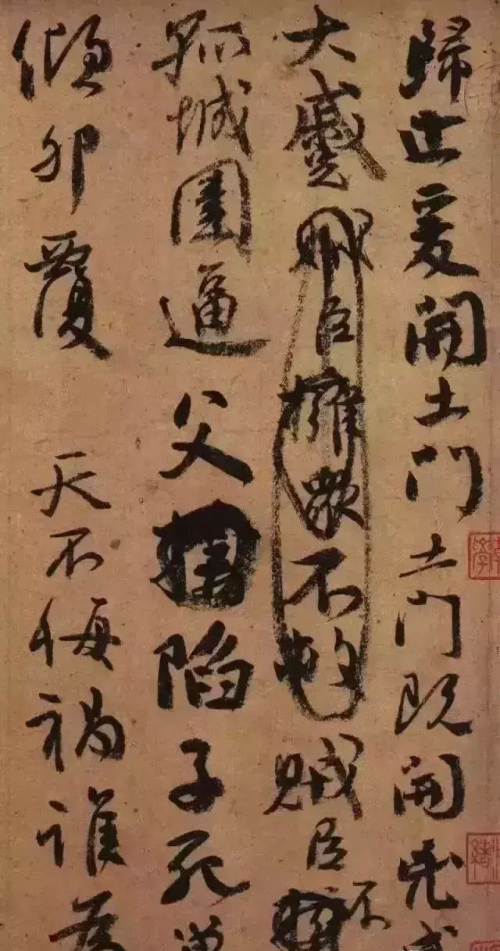 歸止爰開土門土門既開凶
大蹙賊臣擁衆不救賊臣不
孤城圍逼父陷子死
傾卵覆 天不悔禍誰為